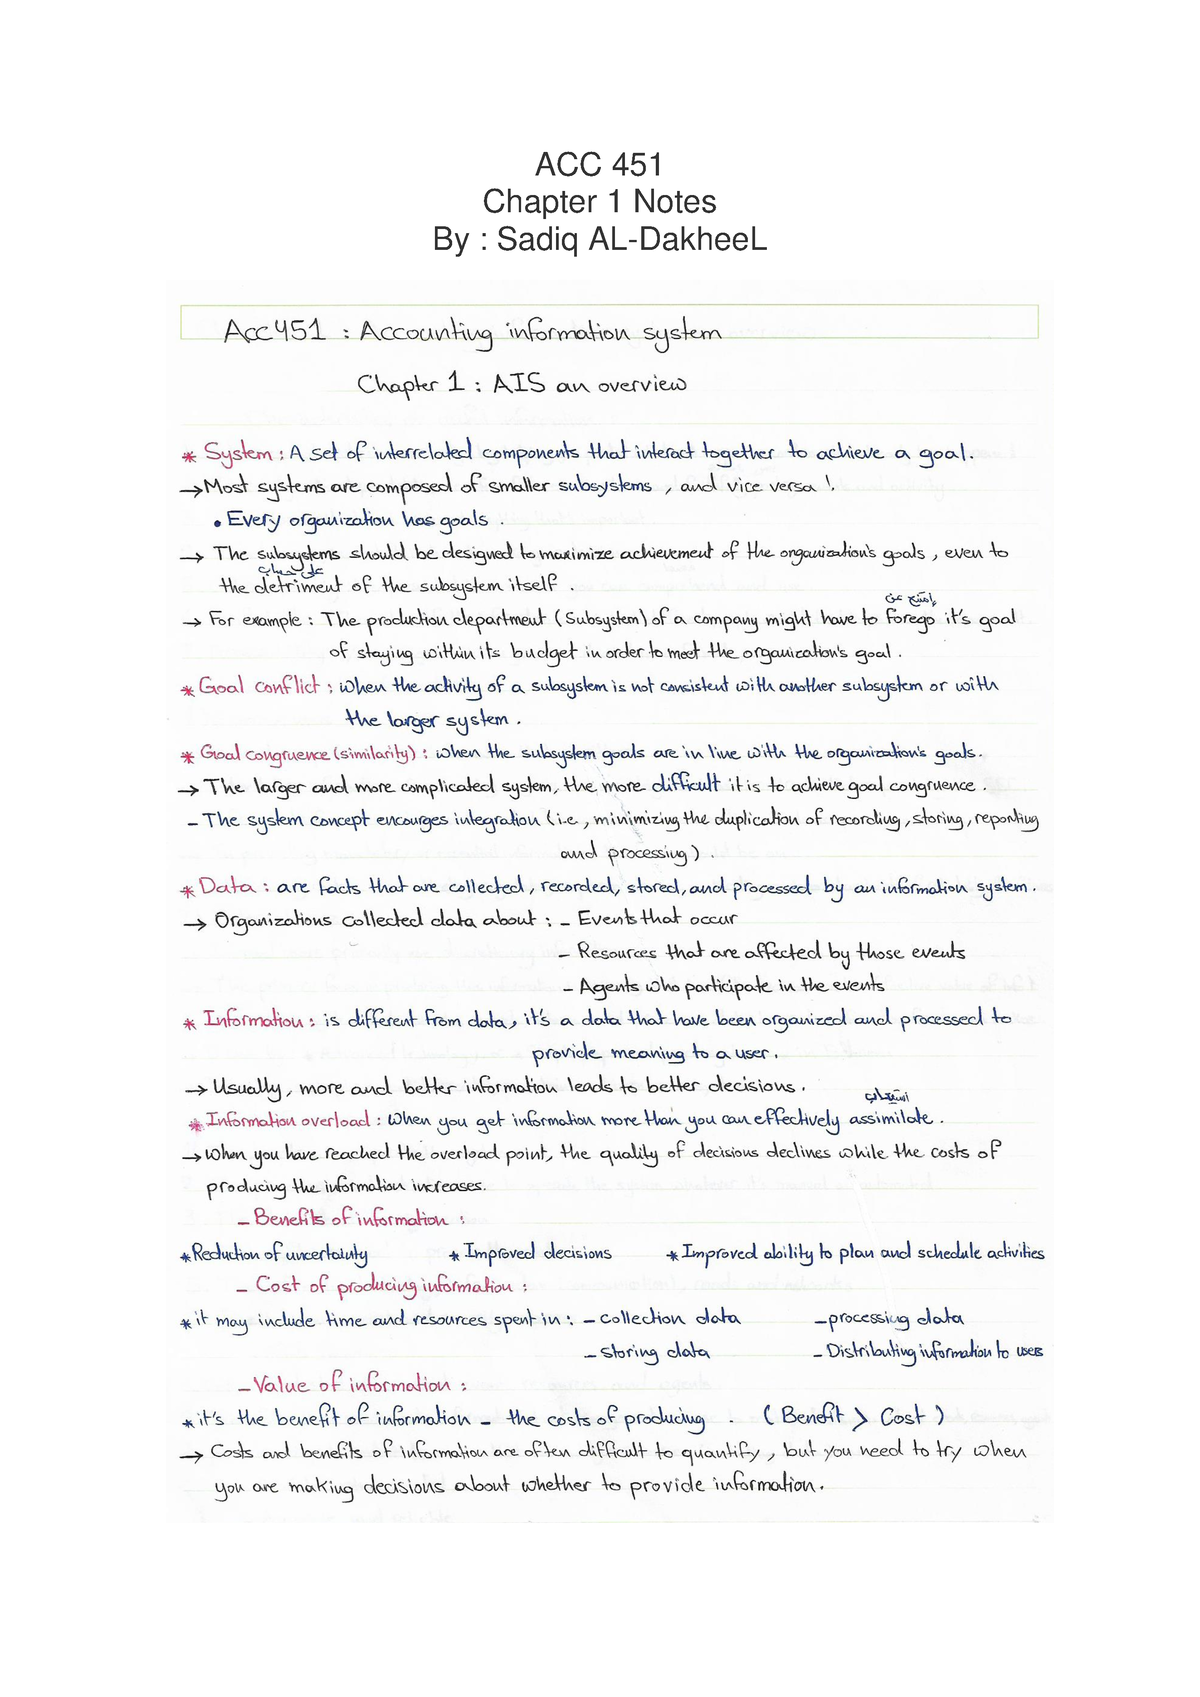 ACC 451
Chapter 1 Notes
By : Sadiq AL-DakheeL
Acc451 : Accounting information system
Chapter 1 : AIS an overview
* System : A set of interrelated components that interact together to achieve a goal.
→ Most systems are composed of smaller subsystems , and vice versa !.
• Every organization has goals .
→ The subsystems should be designed to maximize achievement of the organization's goals , even to
على حساب
the detriment of the subsystem itself .
إمتنع عن
→ For example : The production department (Subsystem) of a company might have to forego it's goal
of staying within its budget in order to meet the organization's goal .
* Goal conflict : when the activity of a subsystem is not consistent with another subsystem or with
the larger system .
* Goal congruence (similarity) : when the subsystem goals are in line with the organization's goals.
→ The larger and more complicated system, the more difficult it is to achieve goal congruence .
- The system concept encourges integration (i.e , minimizing the duplication of recording , storing , reporting
and processing) .
* Data : are facts that are collected , recorded, stored, and processed by an information system .
→ Organizations collected data about : - Events that occur
- Resources that are affected by those events
- Agents who participate in the events
* Information : is different from data, it's a data that have been organized and processed to
provide meaning to a user .
→ Usually, more and better information leads to better decisions .
استيعاب
* Information overload : when you get information more than you can effectively assimilate .
→ When you have reached the overload point, the quality of decisions declines while the costs of
producing the information increases.
- Benefits of information :
* Reduction of uncertainty * Improved decisions * Improved ability to plan and schedule activities
- Cost of producing information :
* it may include time and resources spent in : - collection data - processing data
- storing data - Distributing information to users
- Value of information :
* it's the benefit of information - the costs of producing . ( Benefit > Cost )
→ Costs and benefits of information are often difficult to quantify , but you need to try when
you are making decisions about whether to provide information .